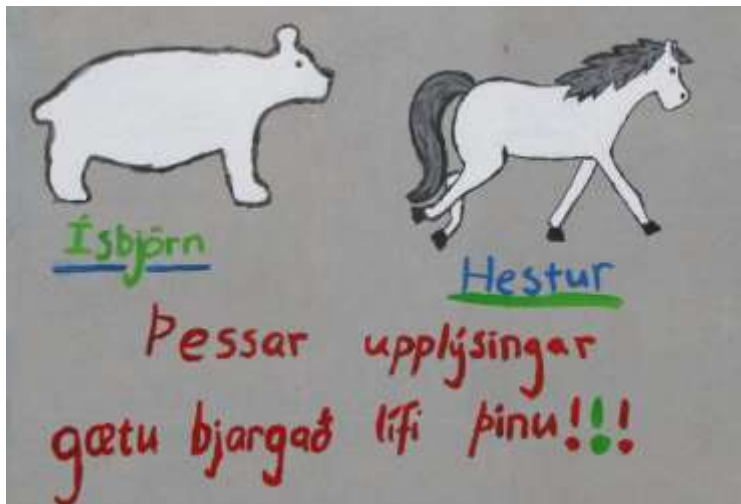 Ísbjörn
Hestur
Þessar upplýsingar
gætu bjargað lífi þínu!!!